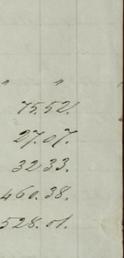 " "
75.52.
27.07.
32 33.
460.38.
528.01.